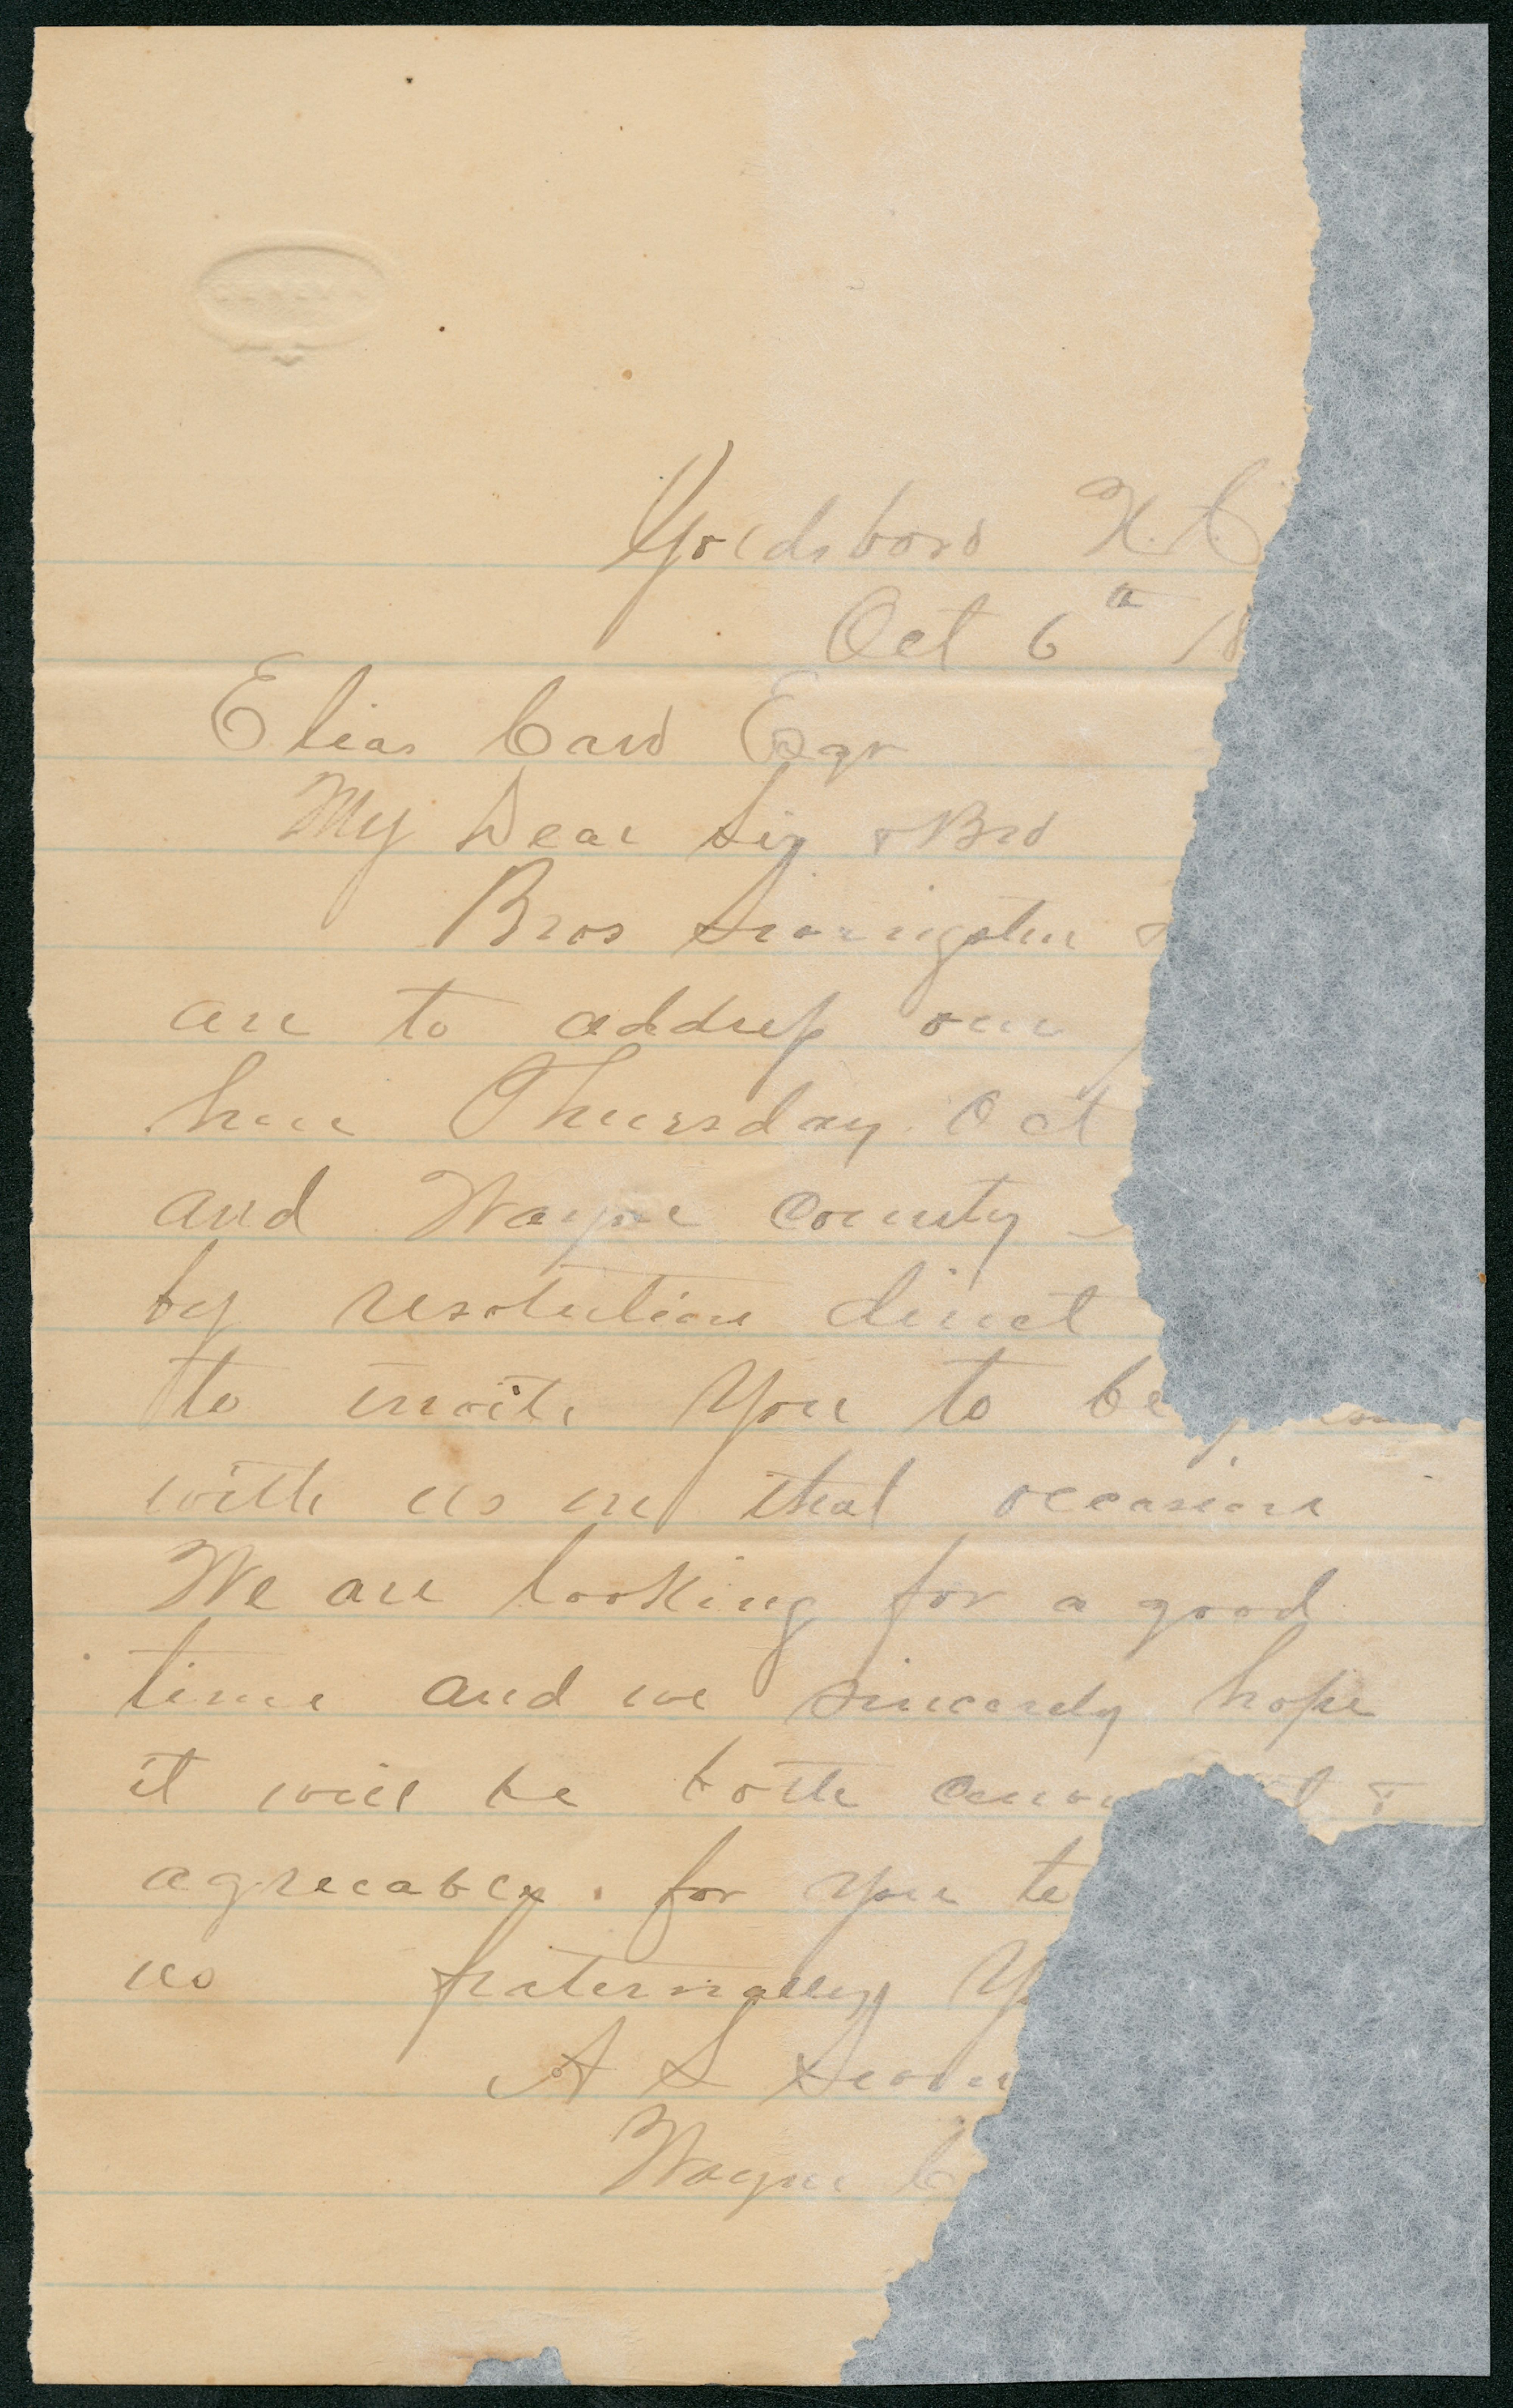 Goldsboro N.C.
Oct 6th 18
Elias Carr Esqr
My Dear Sir & Bro
Bros
are to address our
here Thursday Oct
and Wayne County
by resolution direct
to invite you to be
with us on that occasion
We are looking for a good
time and we sincerely hope
it will be both &
agreeable. for you to
us fraternally
A S
Wayne